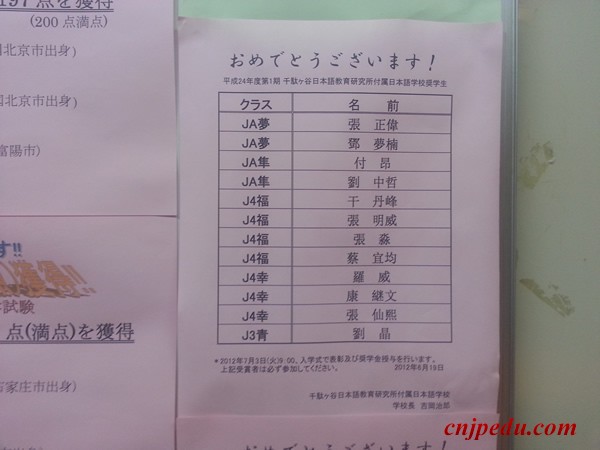 197点を獲得
(200点満点)
国北京市出身)
国北京市出身)
富陽市)
す!!
獲得!!
試験
点(満点)を獲得
家庄市出身)
おめでとうございます!
平成24年度第1期 千駄ヶ谷日本語教育研究所付属日本語学校奨学生
クラス 名 前
JA夢 張 正偉
JA夢 鄧 夢楠
JA隼 付 昂
JA隼 劉 中哲
J4福 干 丹峰
J4福 張 明威
J4福 張 淼
J4福 蔡 宜均
J4幸 羅 威
J4幸 康 継文
J4幸 張 仙熙
J3青 劉 晶
*2012年7月3日(火)9:00、入学式で表彰及び奨学金授与を行います。
上記受賞者は必ず参加してください。 2012年6月19日
千駄ヶ谷日本語教育研究所付属日本語学校
学校長 吉岡治郎
おめでとうございます!
cnjpedu.com